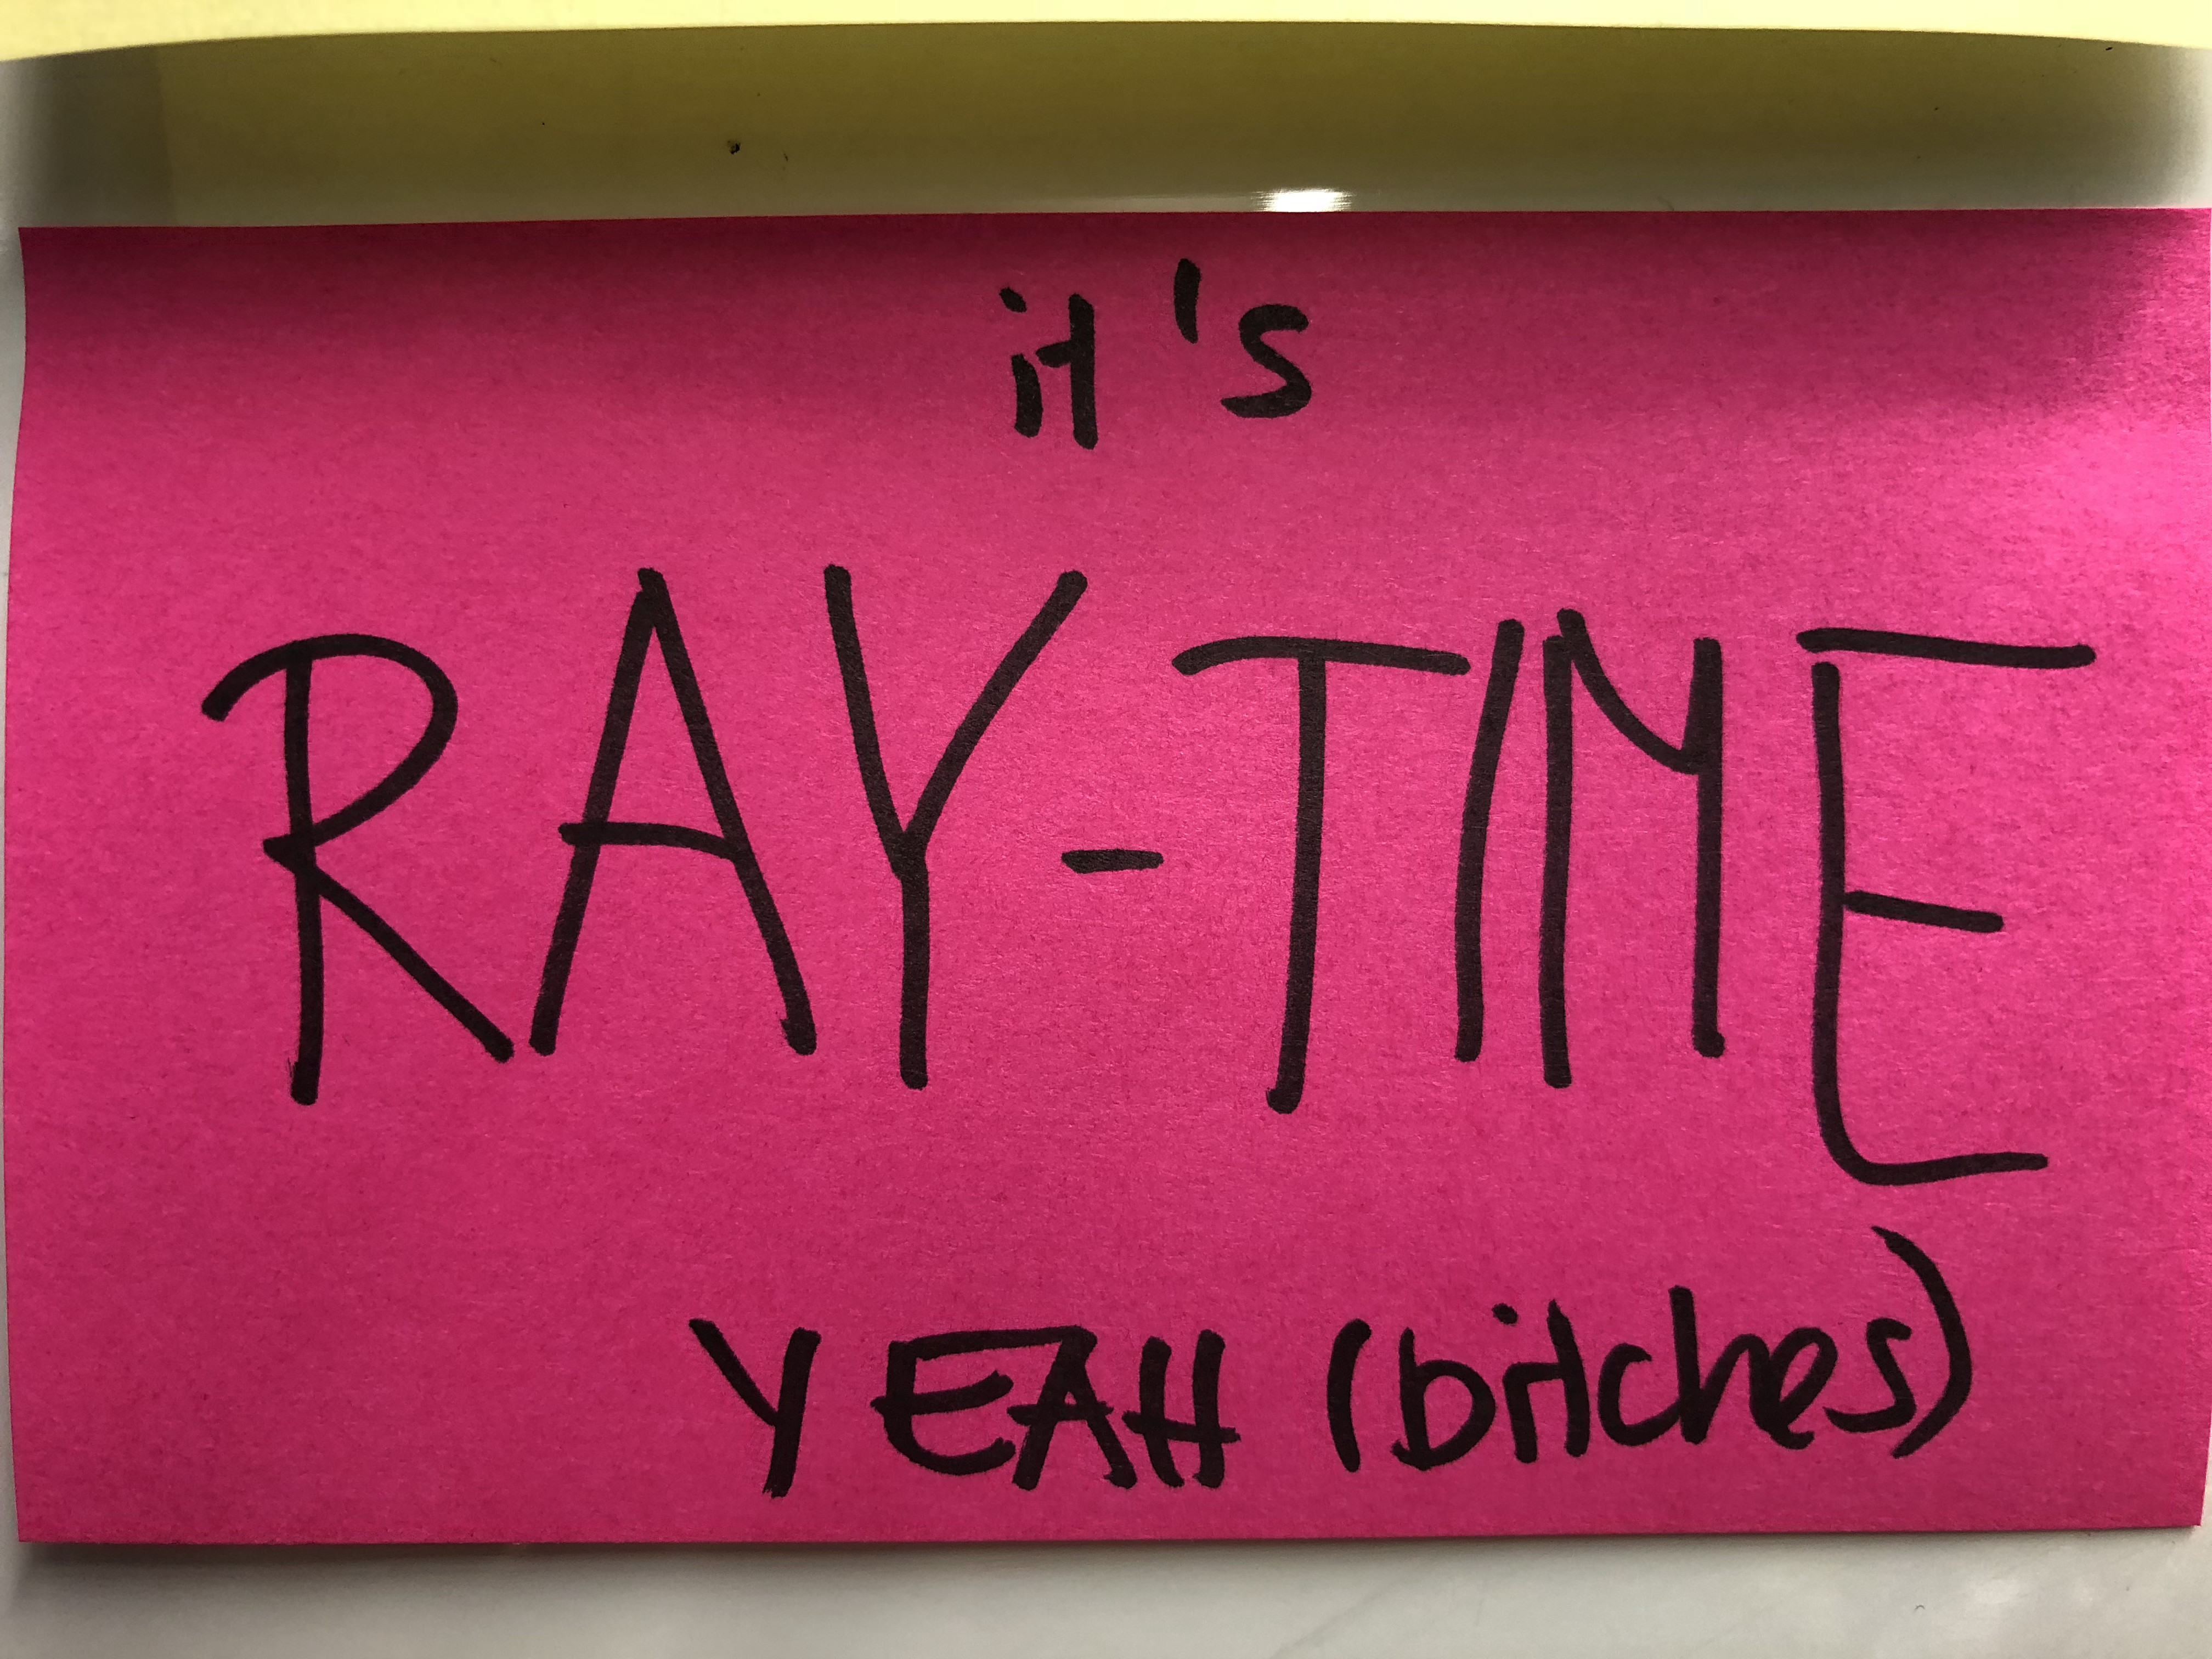 it's
RAY-TIME
YEAH (bitches)